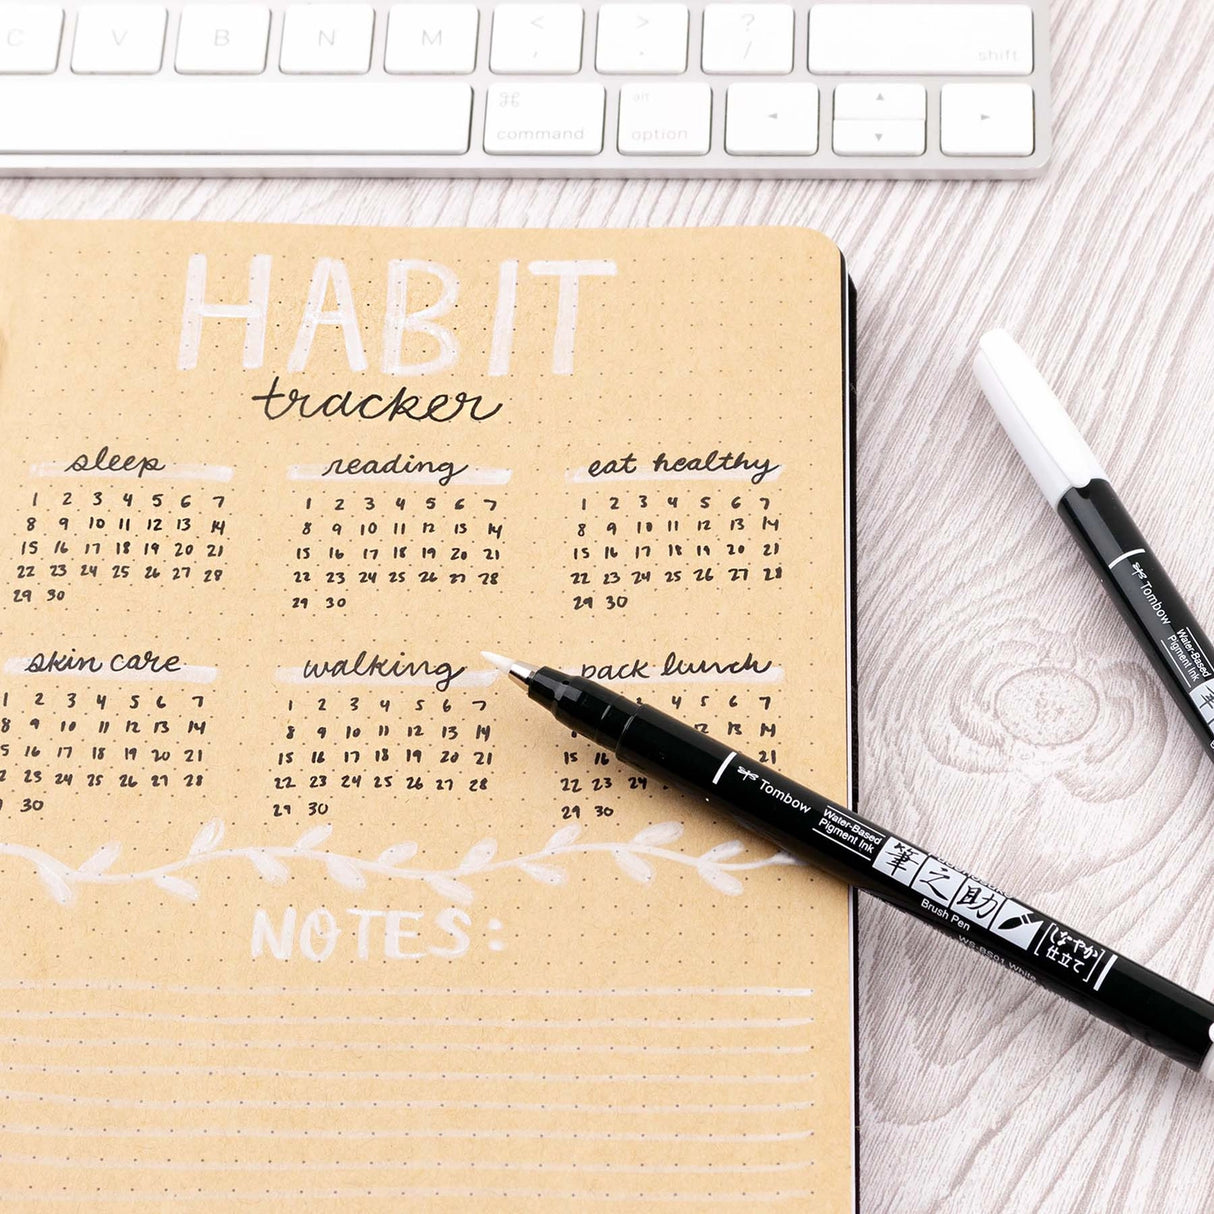 C V B N M < , > . ? /
shift
⌘ command alt option
HABIT
tracker
sleep
1 2 3 4 5 6 7
8 9 10 11 12 13 14
15 16 17 18 19 20 21
22 23 24 25 26 27 28
29 30
reading
1 2 3 4 5 6 7
8 9 10 11 12 13 14
15 16 17 18 19 20 21
22 23 24 25 26 27 28
29 30
eat healthy
1 2 3 4 5 6 7
8 9 10 11 12 13 14
15 16 17 18 19 20 21
22 23 24 25 26 27 28
29 30
skin care
1 2 3 4 5 6 7
8 9 10 11 12 13 14
5 16 17 18 19 20 21
2 23 24 25 26 27 28
30
walking
1 2 3 4 5 6 7
8 9 10 11 12 13 14
15 16 17 18 19 20 21
22 23 24 25 26 27 28
29 30
pack lunch
3 4 5 6 7
12 13 14
15 16 21
22 23 24
29 30
NOTES:
Tombow
Water-Based
Pigment Ink
筆之助
Brush Pen
WS-BS01 White
しなやか
仕立て
Tombow
Water-Based
Pigment Ink
筆